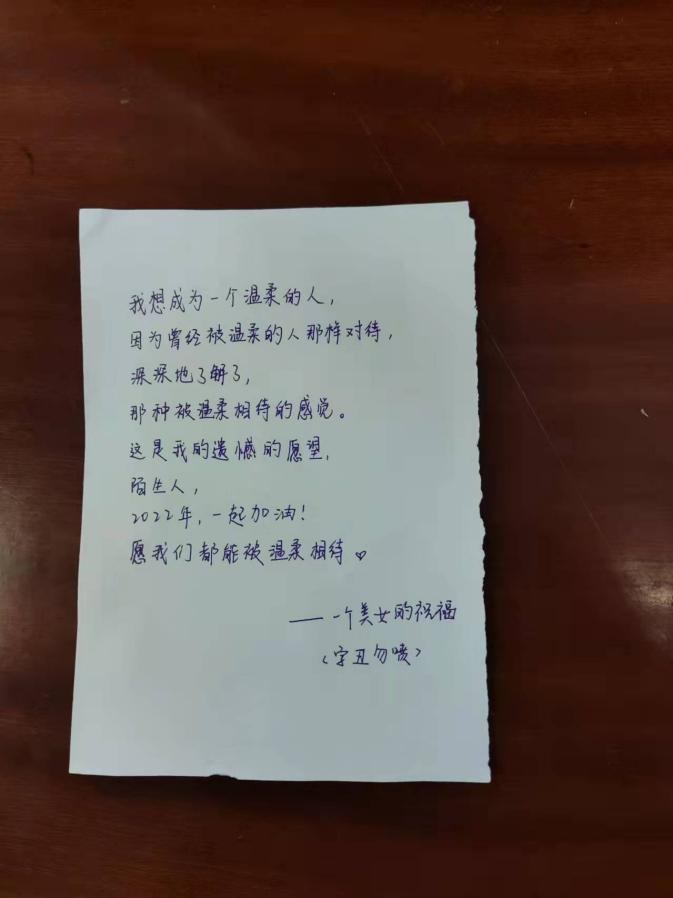 我想成为一个温柔的人，
因为曾经被温柔的人那样对待，
深深地了解了，
那种被温柔相待的感觉。
这是我的遗憾的愿望，
陌生人，
2022年，一起加油！
愿我们都能被温柔相待♡
——一个美女的祝福
（字丑勿喷）